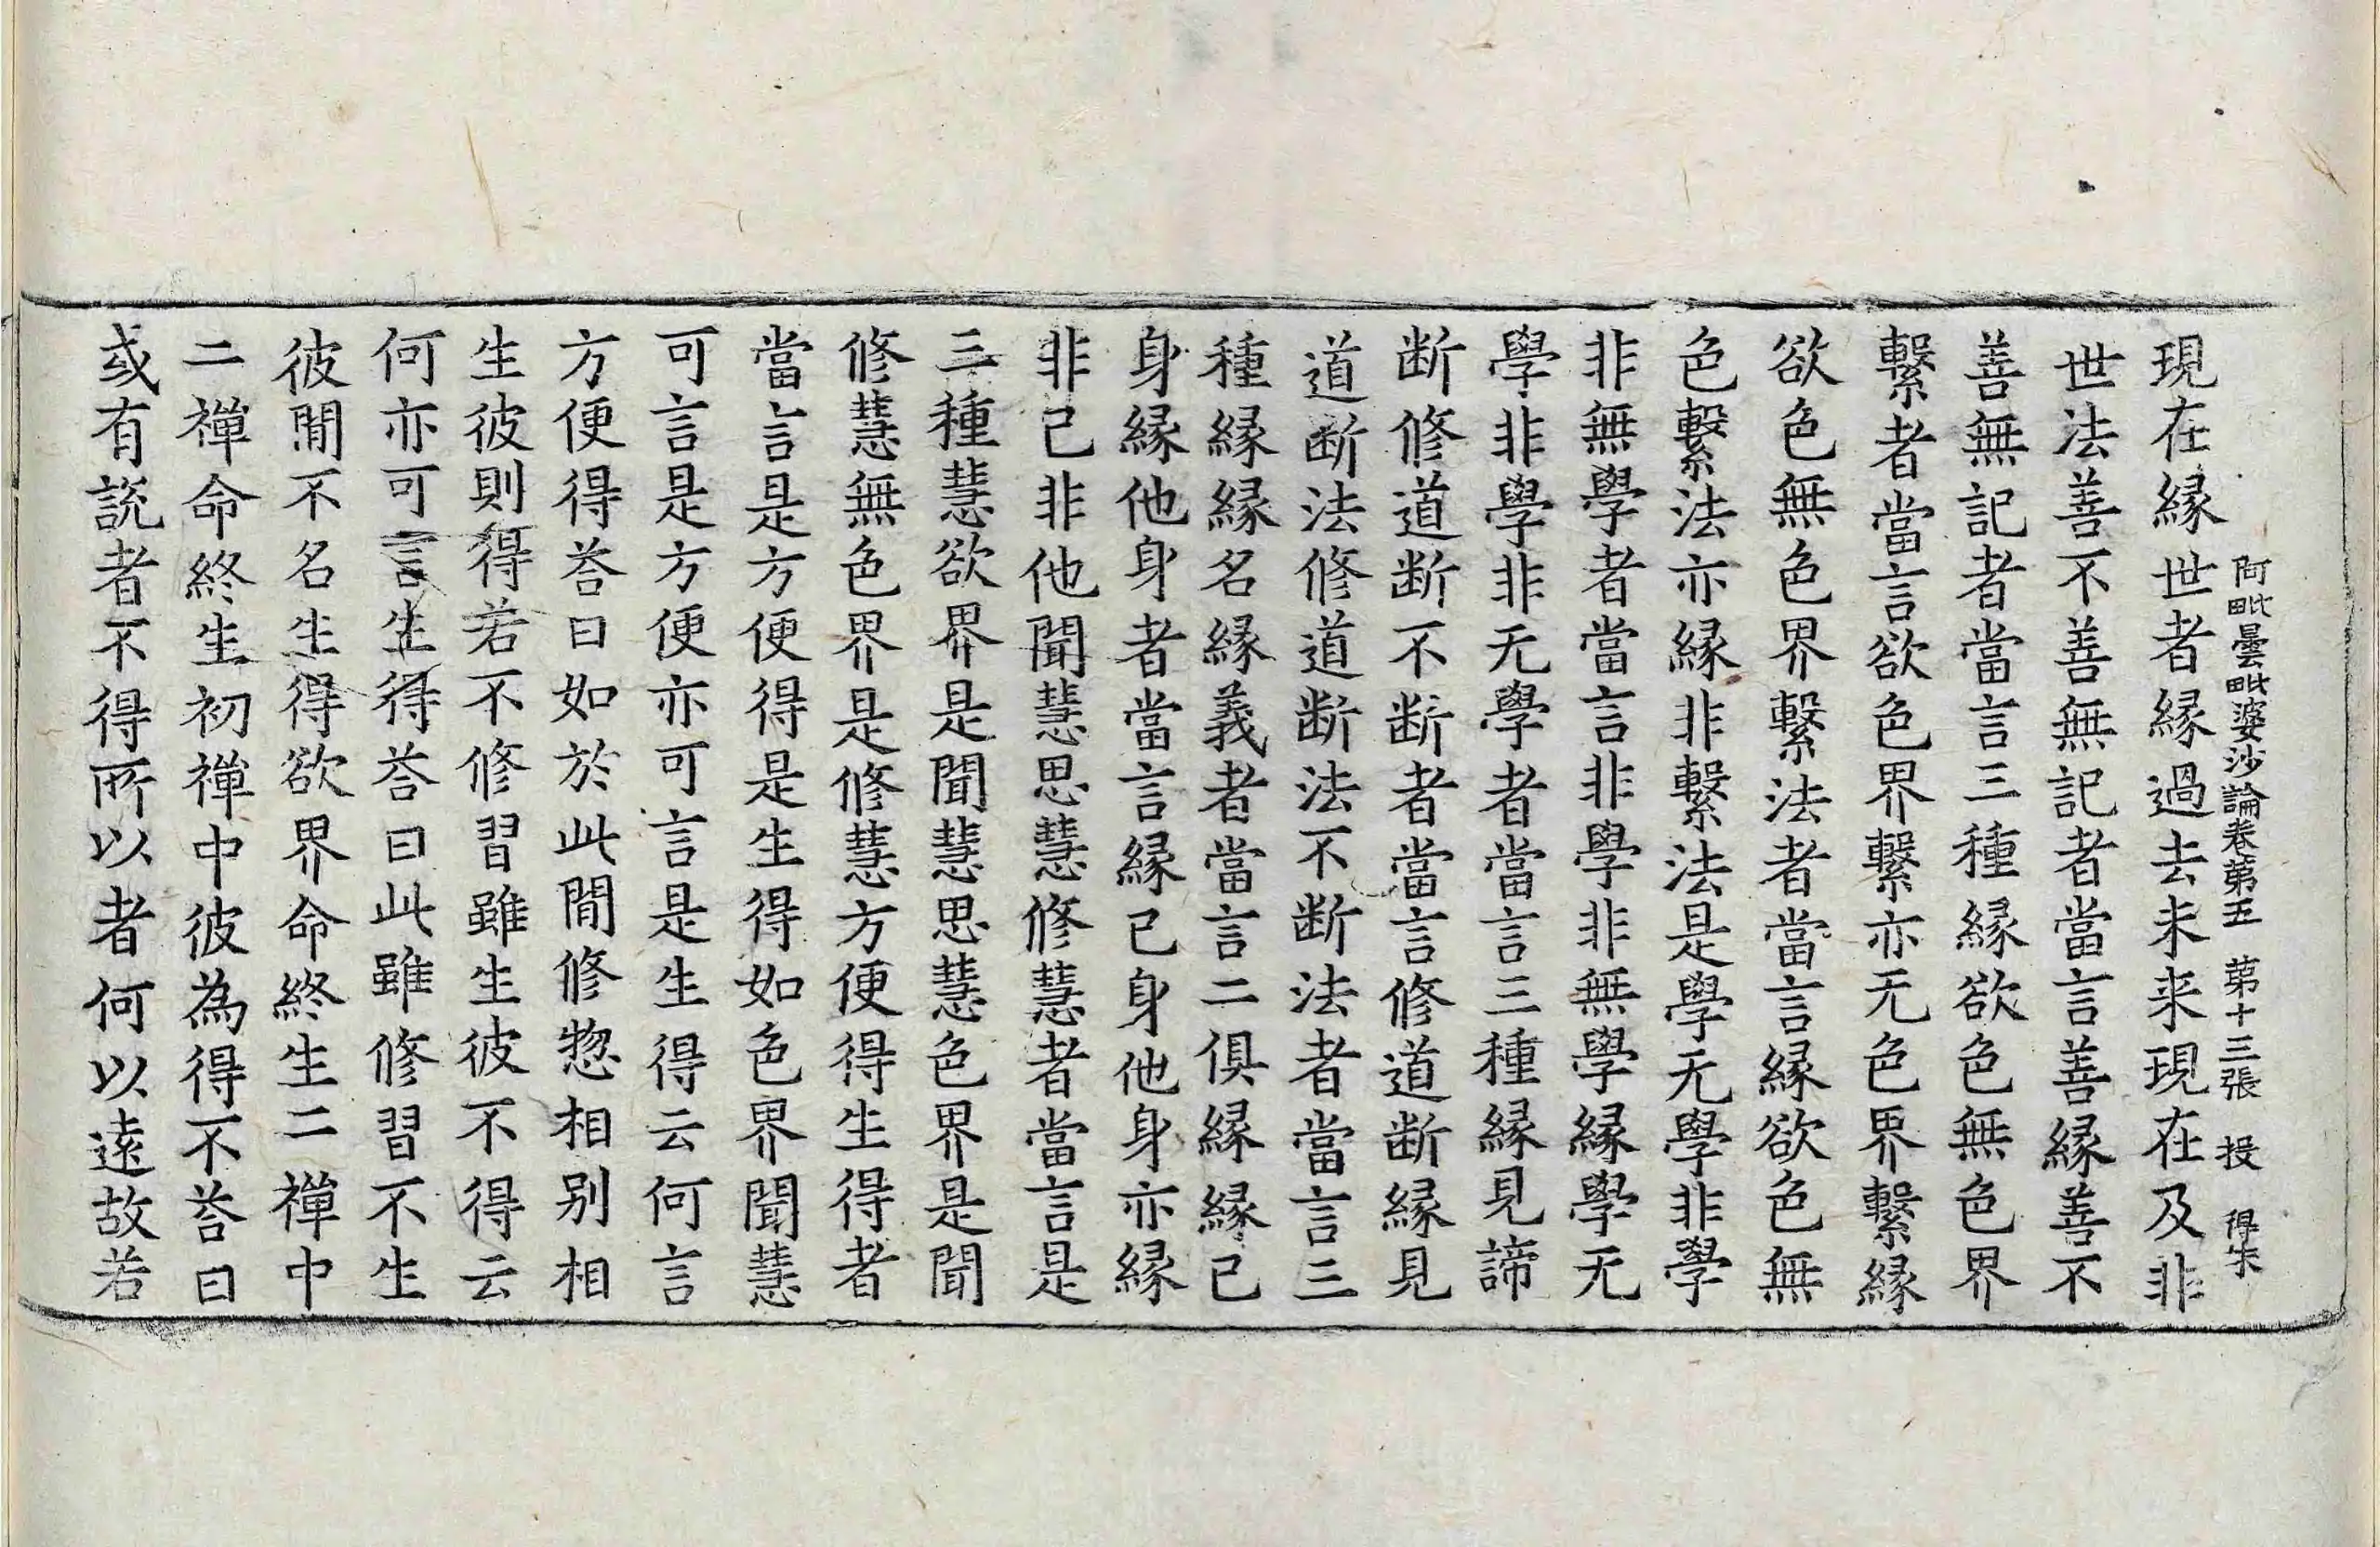 阿毗曇毗婆沙論卷第五　第十三張　投　得宋
現在縁世者縁過去未来現在及非
世法善不善無記者當言善縁善不
善無記者當言三種縁欲色無色界
繫者當言欲色界繫亦无色界繫縁
欲色無色界繫法者當言縁欲色無
色繫法亦縁非繫法是學无學非學
非無學者當言非學非無學縁學无
學非學非无學者當言三種縁見諦
断修道断不断者當言修道断縁見
道断法修道断法不断法者當言三
種縁縁名縁義者當言二俱縁縁己
身縁他身者當言縁己身他身亦縁
非己非他聞慧思慧修慧者當言是
三種慧欲界是聞慧思慧色界是聞
修慧無色界是修慧方便得生得者
當言是方便得是生得如色界聞慧
可言是方便亦可言是生得云何言
方便得荅曰如於此間修惣相别相
生彼則得若不修習雖生彼不得云
何亦可言生得荅曰此雖修習不生
彼間不名生得欲界命終生二禪中
二禪命終生初禪中彼為得不荅曰
或有説者不得所以者何以遠故若